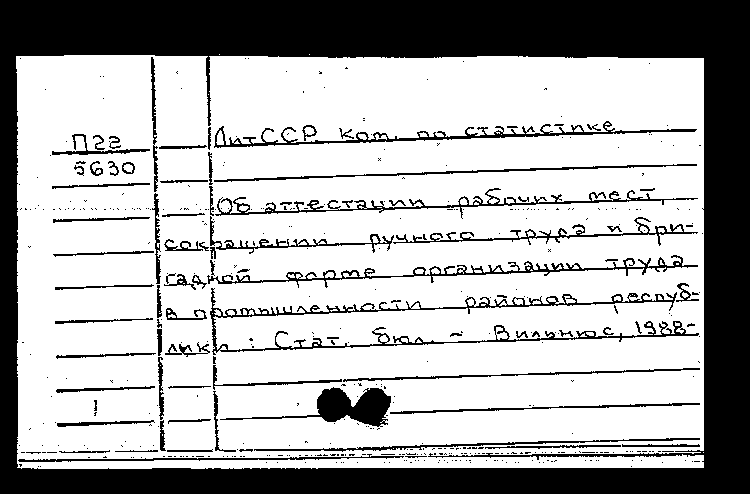 П22
5630
ЛитССР. Ком. по статистике.
Об аттестации рабочих мест,
сокращении ручного труда и бри-
гадной форме организации труда
в промышленности районов респуб-
лики : Стат. бюл. - Вильнюс, 1988-
1